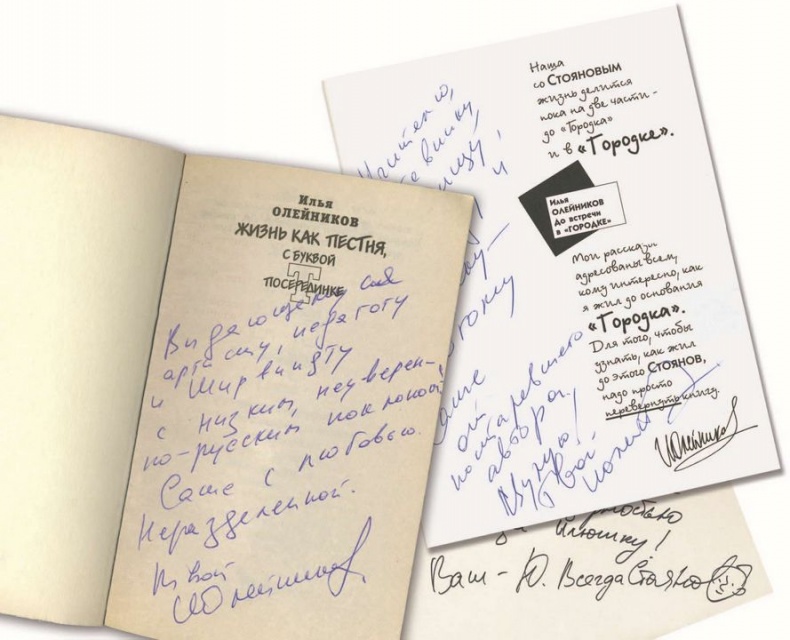 Илья
ОЛЕЙНИКОВ
ЖИЗНЬ КАК ПЕСТНЯ,
С БУКВОЙ
Т
ПОСЕРЕДИНКЕ
Выдающемуся
артисту, педагогу
и Ширвиндту
с низким, неуверен-
но-русским поклоном
Саше с любовью.
Неразделенной.
Твой
ИОлейников
Наша
со СТОЯНОВЫМ
жизнь делится
пока на две части -
до «Городка»
и в «Городке».
Илья
ОЛЕЙНИКОВ
До встречи
в «ГОРОДКЕ»
Мои рассказы
адресованы всем,
кому интересно, как
я жил до основания
«Городка».
Для того, чтобы
узнать, как жил
до этого СТОЯНОВ,
надо просто
перевернуть книгу.
ИОлейников
Саше
от
постаревшего
автора.
Твой
Илюшку!
Ваш - Ю. Всегда Стоянов